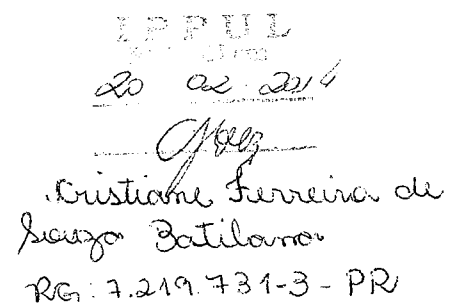 IPPUL
20 02 2014
Cristiane Ferreira de
Souza Batilana
RG: 7.219.731-3 - PR